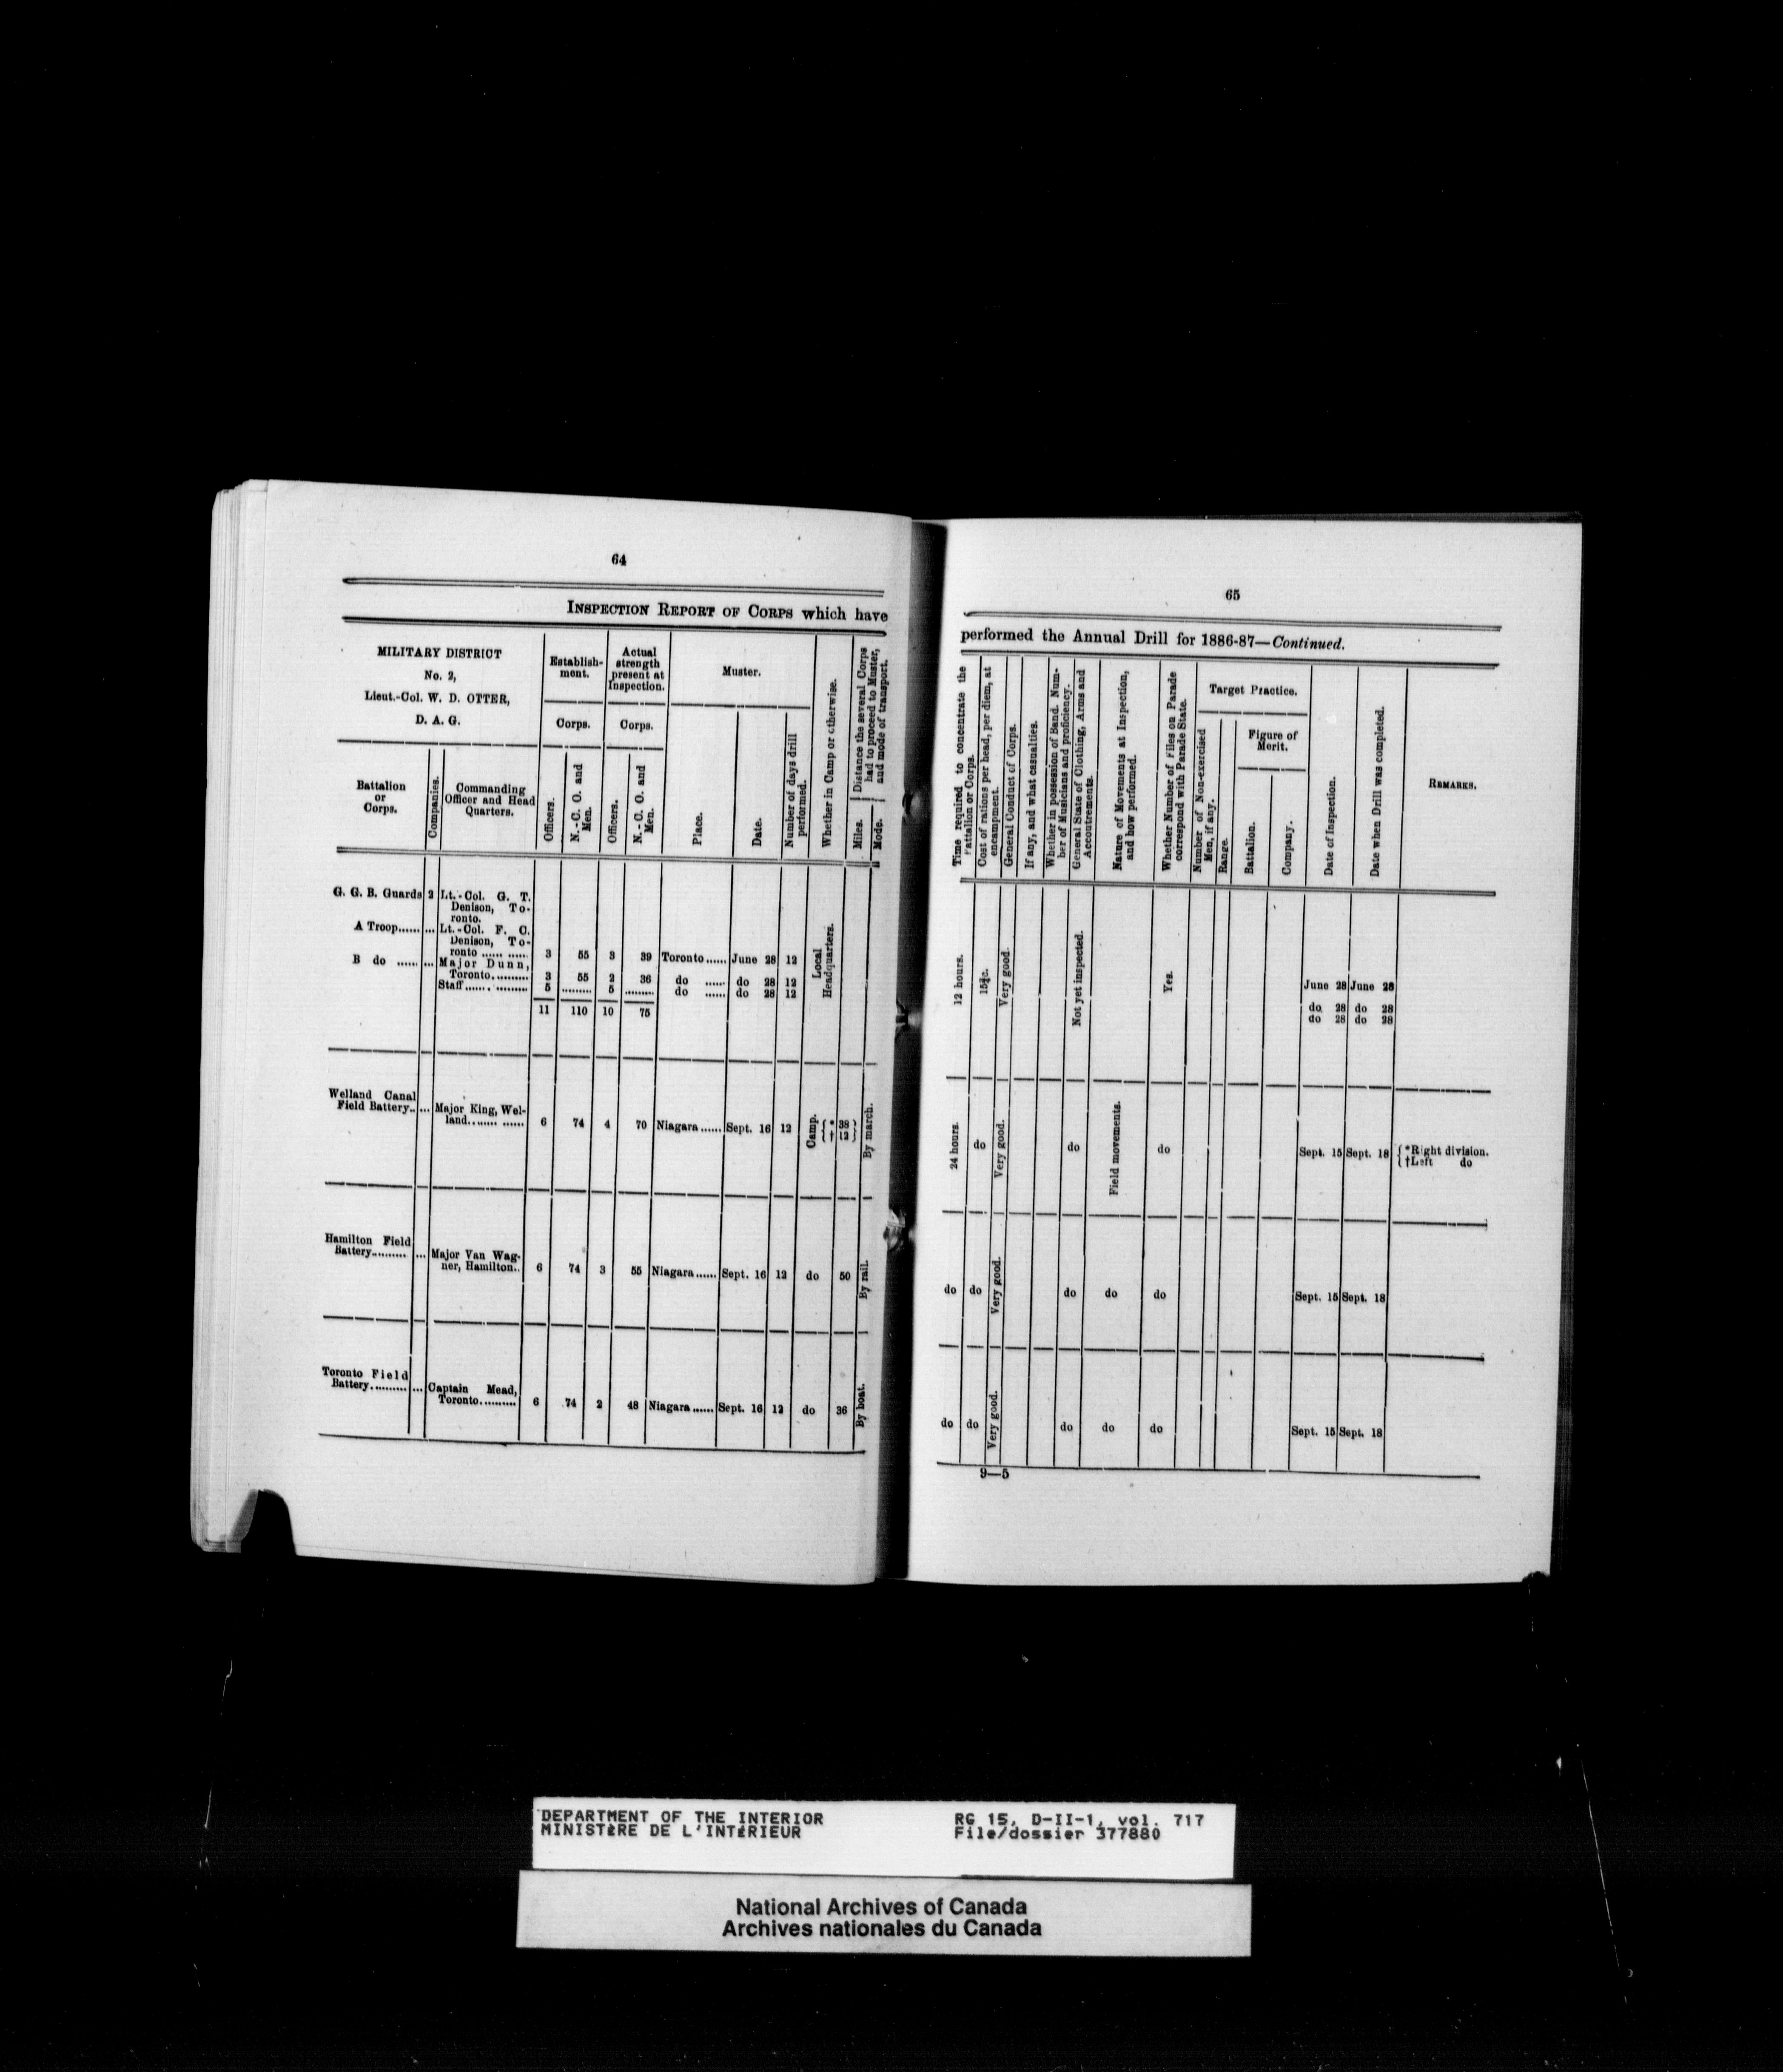 64
INSPECTION REPORT OF CORPS which have
MILITARY DISTRICT
No. 2,
Lieut.-Col. W. D. OTTER,
D. A. G.
Establish-
ment.
Actual
strength
present at
Inspection.
Muster.
Corps.
Corps.
Battalion
or
Corps.
Companies.
Commanding
Officer and Head
Quarters.
Officers.
N.-C. O. and
Men.
Officers.
N.-C. O. and
Men.
Place.
Date.
Number of days drill
performed.
Whether in Camp or otherwise.
Distance the several Corps
had to proceed to Muster,
and mode of transport.
Miles.
Mode.
G. G. B. Guards 2 Lt.-Col. G. T.
Denison, To-
ronto.
A Troop...... ... Lt.-Col. F. C.
Denison, To-
ronto ...... ...... 3 55 3 39 Toronto...... June 28 12
B do ...... ... Major Dunn,
Toronto.......... 3 55 2 36 do ...... do 28 12
Staff...... .......... 5 .......... 5 .......... do ...... do 28 12
11 110 10 75
Local
Headquarters.
Welland Canal
Field Battery.. ... Major King, Wel-
land........ ...... 6 74 4 70 Niagara...... Sept. 16 12 Camp. { * 38 } By march.
{ † 12 }
Hamilton Field
Battery.......... ... Major Van Wag-
ner, Hamilton.. 6 74 3 55 Niagara...... Sept. 16 12 do 50 By rail.
Toronto Field
Battery.......... ... Captain Mead,
Toronto.......... 6 74 2 48 Niagara...... Sept. 16 12 do 36 By boat.
65
performed the Annual Drill for 1886-87—Continued.
Time required to concentrate the
Battalion or Corps.
Cost of rations per head, per diem, at
encampment.
General Conduct of Corps.
If any, and what casualties.
Whether in possession of Band. Num-
ber of Musicians and proficiency.
General State of Clothing, Arms and
Accoutrements.
Nature of Movements at Inspection,
and how performed.
Whether Number of Files on Parade
correspond with Parade State.
Target Practice.
Number of Non-exercised
Men, if any.
Range.
Figure of
Merit.
Battalion.
Company.
Date of Inspection.
Date when Drill was completed.
REMARKS.
12 hours. 15¾c. Very good. Not yet inspected. Yes. June 28 June 28
do 28 do 28
do 28 do 28
24 hours. do Very good. do Field movements. do Sept. 15 Sept. 18 { *Right division.
{ †Left do
do do Very good. do do do Sept. 15 Sept. 18
do do Very good. do do do Sept. 15 Sept. 18
9—5
DEPARTMENT OF THE INTERIOR
MINISTÈRE DE L'INTÉRIEUR
RG 15, D-II-1, vol. 717
File/dossier 377880
National Archives of Canada
Archives nationales du Canada